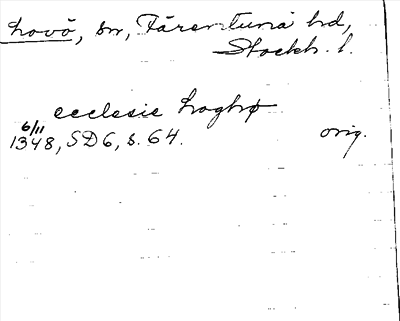 Lovö, sn, Färentuna hd,
Stockh. l.
ecclesie Loghø
6/11
1348, SD6, s. 64. orig.